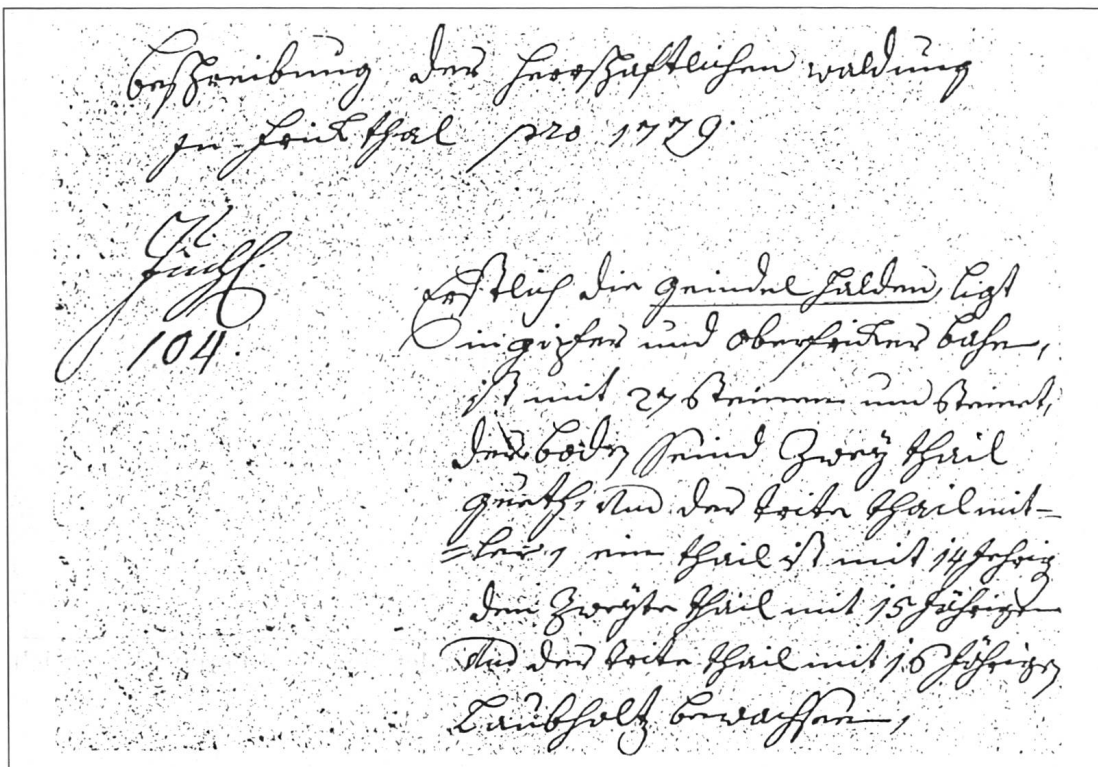 Beschreibung der herrschaftlichen waldung
in Frickthal pro 1779.
Juch.
104.
Erstlich die geindel halden, ligt
in gipfer und oberfricker bahn,
ist mit 27 Steinen um steinet,
der boden seind Zwey thail
gueth, und der trite thail mit-
=ler, ein thail ist mit 14 Jehrig
den Zweyte thail mit 15 Jährigen
und der trite thail mit 16 Jährigen
Laubholtz bewachsen,